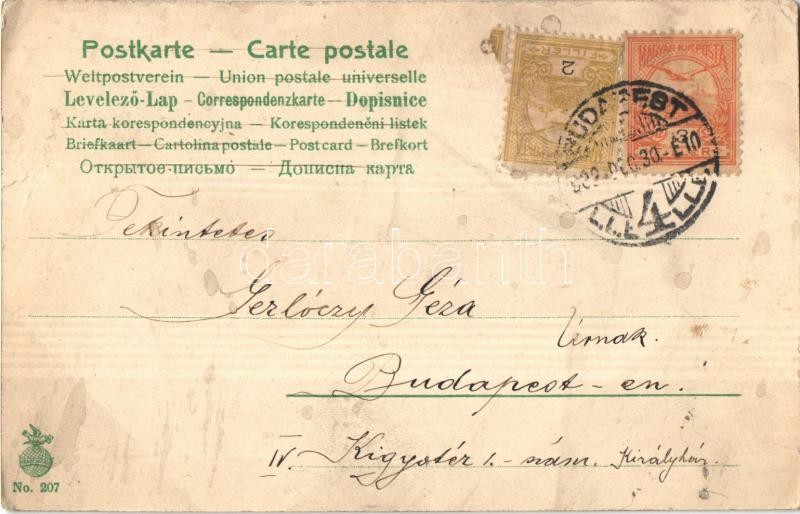 Postkarte — Carte postale
Weltpostverein — Union postale universelle
Levelező-Lap – Correspondenzkarte – Dopisnice
Karta korespondencyjna — Korespondenční listek
Briefkaart — Cartolina postale — Post card — Brefkort
Открытое письмо — Дописна карта
FILLÉR
2
MAGYAR KIR. POSTA
BUDAPEST
902 DEC. 30 - E10
4
Tekintetes
Gerlóczy Géza
Úrnak.
Budapest - en.
IV. Kigyótér 1. - szám. Királybár.
darabanth
No. 207